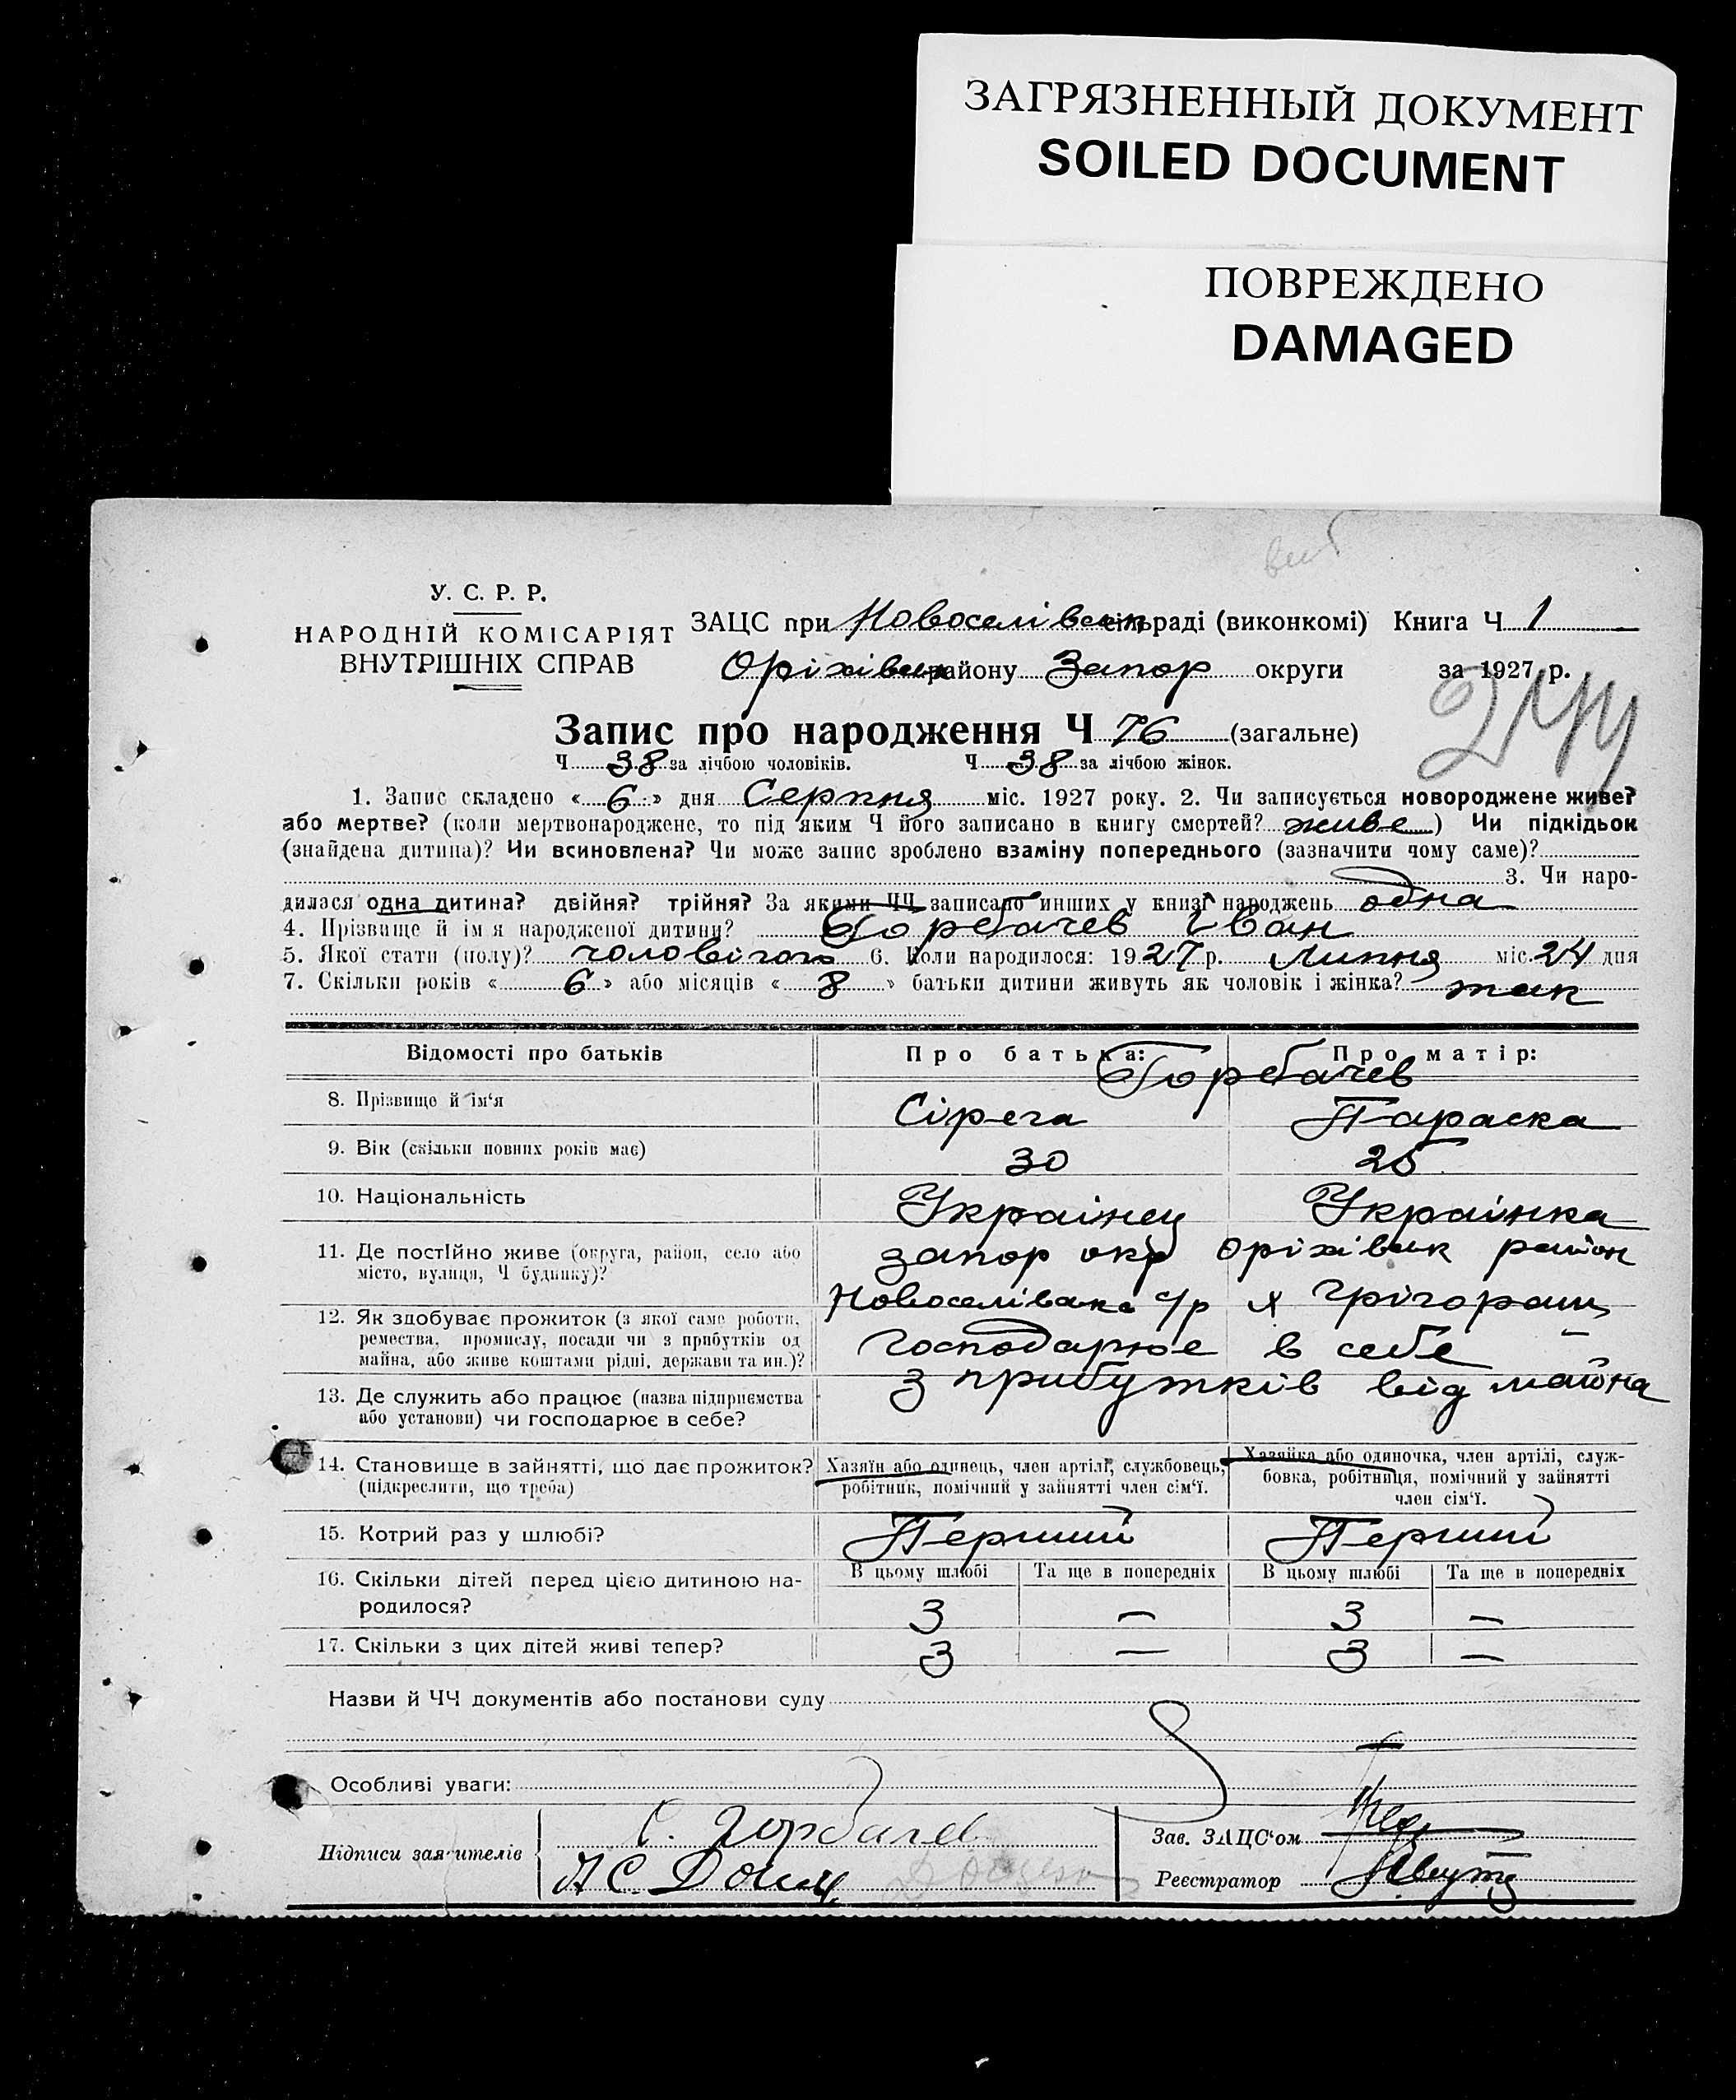 ЗАГРЯЗНЕННЫЙ ДОКУМЕНТ
SOILED DOCUMENT
ПОВРЕЖДЕНО
DAMAGED
У. С. Р. Р.
НАРОДНІЙ КОМІСАРІЯТ
ВНУТРІШНІХ СПРАВ
ЗАЦС при Новоселівськ сільраді (виконкомі) Книга Ч 1
Оріхівськ району Запор округи за 1927 р.
244
Запис про народження Ч 76 (загальне)
Ч 38 за лічбою чоловіків. Ч 38 за лічбою жінок.
1. Запис складено « 6 » дня Серпня міс. 1927 року. 2. Чи записується новороджене живе?
або мертве? (коли мертвонароджене, то під яким Ч його записано в книгу смертей? живе ) Чи підкідьок
(знайдена дитина)? Чи всиновлена? Чи може запис зроблено взаміну попереднього (зазначити чому саме)?
3. Чи наро-
дилася одна дитина? двійня? трійня? За якими ЧЧ записано инших у книзі народжень одна
4. Прізвище й ім я народженої дитини? Горбачев Іван
5. Якої стати (полу)? чоловічого 6. Коли народилося: 1927 р. Липня міс. 24 дня
7. Скільки років « 6 » або місяців « 8 » батьки дитини живуть як чоловік і жінка? так
Відомості про батьків Про батька: Про матір:
Горбачев
8. Прізвище й ім'я Сірега Параска
9. Вік (скільки повних років має) 30 25
10. Національність Українец Українка
11. Де постійно живе (округа, район, село або запор окр Оріхівськ район
місто, вулиця, Ч будинку)?
Новоселівська с/р х Грігораш
12. Як здобуває прожиток (з якої саме роботи,
ремества, промислу, посади чи з прибутків од господарює в себе –
майна, або живе коштами рідні, держави та ин.)?
з прибутків від майна
13. Де служить або працює (назва підприємства
або установи) чи господарює в себе?
14. Становище в зайнятті, що дає прожиток? Хазяїн або одинець, член артілі, службовець, Хазяйка або одиночка, член артілі, служ-
(підкреслити, що треба) робітник, помічний у зайнятті член сім'ї. бовка, робітниця, помічний у зайнятті
член сім'ї.
15. Котрий раз у шлюбі? Перший Перший
16. Скільки дітей перед цією дитиною на- В цьому шлюбі Та ще в попередніх В цьому шлюбі Та ще в попередніх
родилося? 3 — 3 —
17. Скільки з цих дітей живі тепер? 3 — 3 —
Назви й ЧЧ документів або постанови суду
Особливі уваги:
Підписи заявителів С. Горбачев Зав. ЗАЦС'ом
Реєстратор